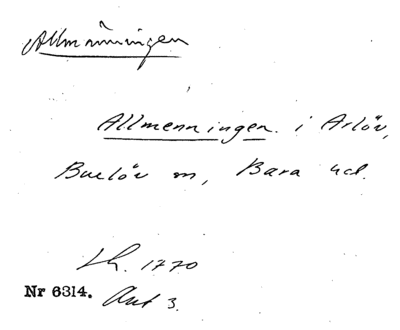 Allmänningen
Allmenningen i Arlöv,
Burlöv sn, Bara hd.
Lh. 1770
Nr 6314. Akt 3.